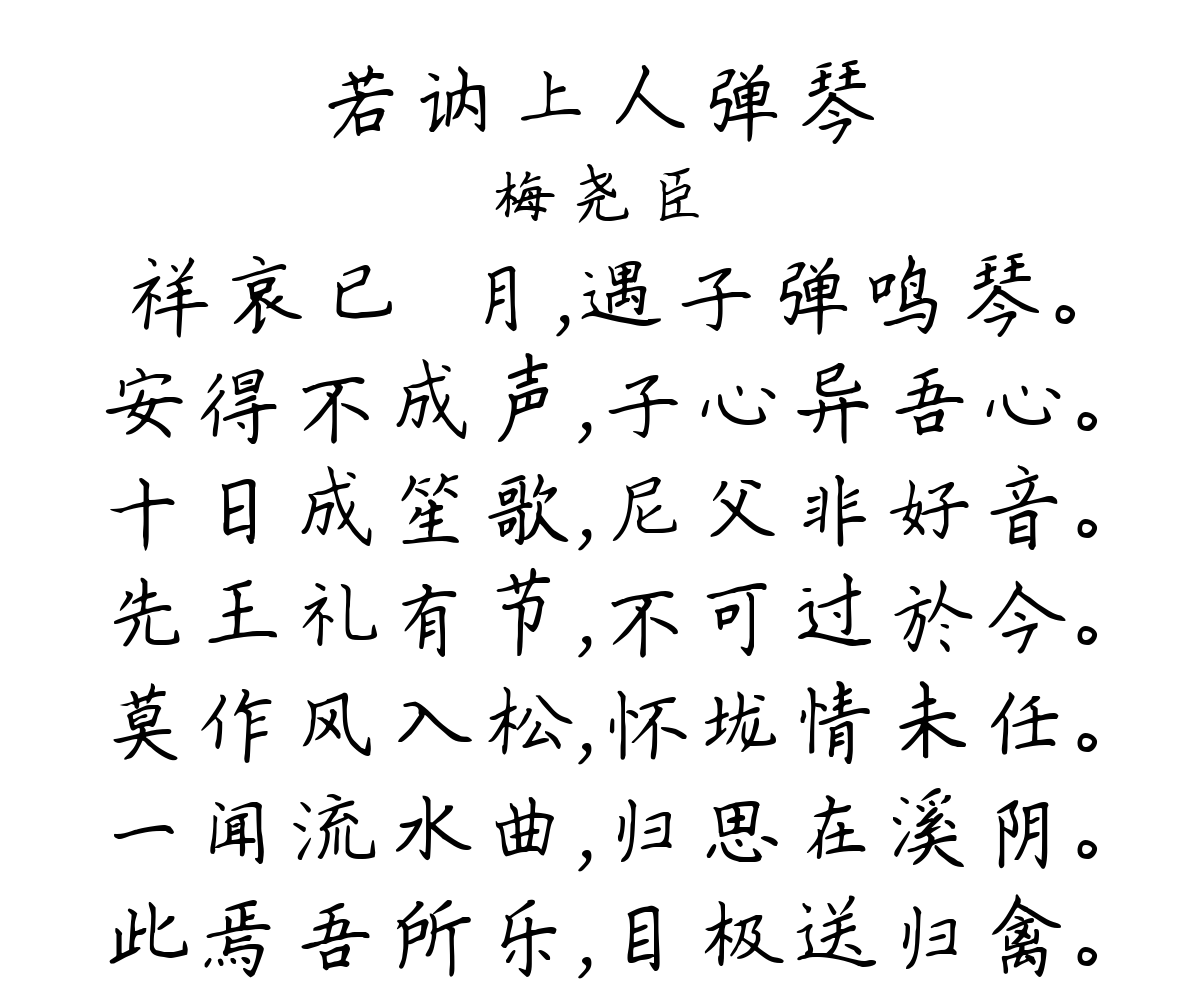 若讷上人弹琴
梅尧臣
祥哀已 月,遇子弹鸣琴。
安得不成声,子心异吾心。
十日成笙歌,尼父非好音。
先王礼有节,不可过於今。
莫作风入松,怀垅情未任。
一闻流水曲,归思在溪阴。
此焉吾所乐,目极送归禽。